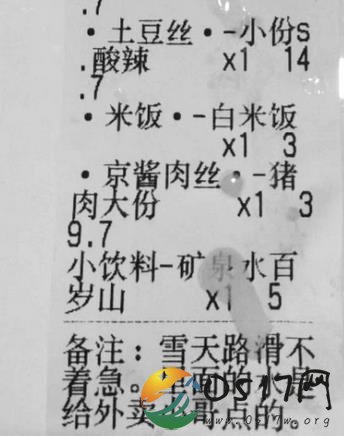 .7
·土豆丝·-小份s
.酸辣 x1 14
.7
·米饭·-白米饭
x1 3
·京酱肉丝·-猪
肉大份 x1 3
9.7
小饮料-矿泉水百
岁山 x1 5
备注：雪天路滑不
着急。里面的水是
给外卖小哥点的。
0517网
www.0517w.org